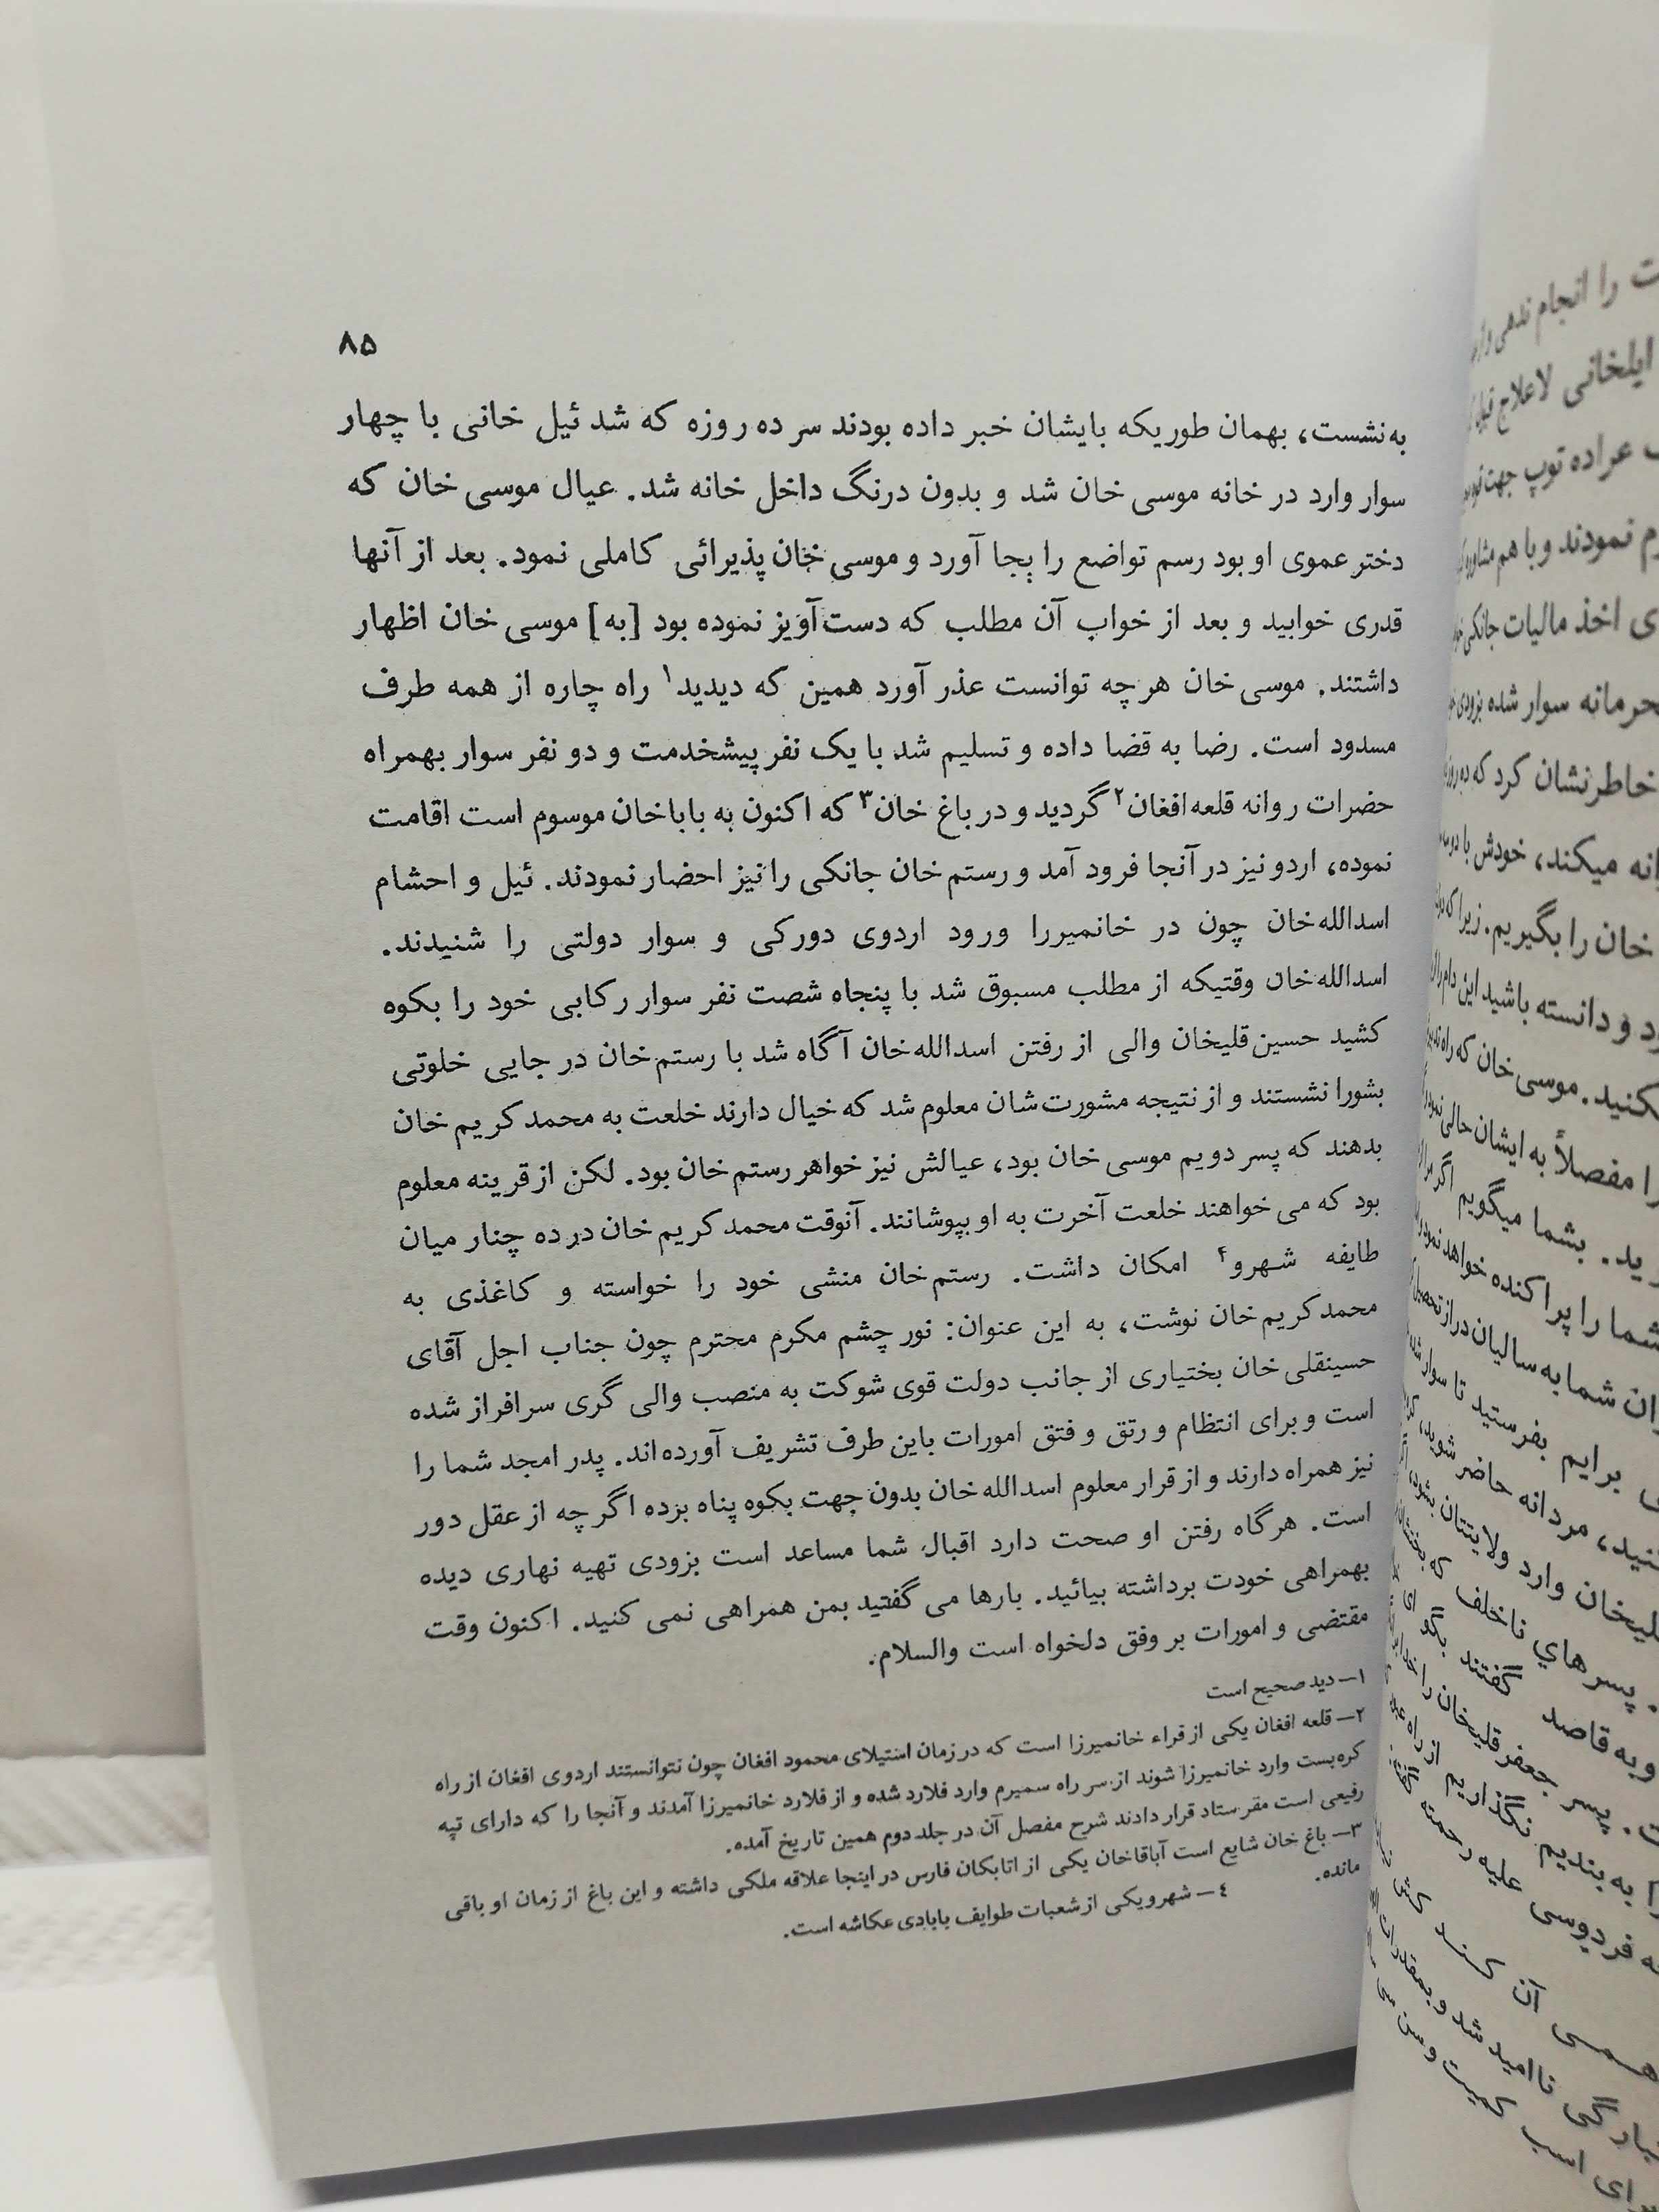 ۸۵
به‌نشست، بهمان طوریکه بایشان خبر داده بودند سر ده روزه که شد ئیل خانی با چهار
سوار وارد در خانه موسی خان شد و بدون درنگ داخل خانه شد. عیال موسی خان که
دختر عموی او بود رسم تواضع را بجا آورد و موسی خان پذیرائی کاملی نمود. بعد از آنها
قدری خوابید و بعد از خواب آن مطلب که دست‌آویز نموده بود [به] موسی خان اظهار
داشتند. موسی خان هر چه توانست عذر آورد همین که دیدید۱ راه چاره از همه طرف
مسدود است. رضا به قضا داده و تسلیم شد با یک نفر پیشخدمت و دو نفر سوار بهمراه
حضرات روانه قلعه افغان۲ گردید و در باغ خان۳ که اکنون به باباخان موسوم است اقامت
نموده، اردو نیز در آنجا فرود آمد و رستم خان جانکی را نیز احضار نمودند. ئیل و احشام
اسدالله‌خان چون در خانمیررا ورود اردوی دورکی و سوار دولتی را شنیدند.
اسدالله‌خان وقتیکه از مطلب مسبوق شد با پنجاه شصت نفر سوار رکابی خود را بکوه
کشید حسین‌قلیخان والی از رفتن اسدالله‌خان آگاه شد با رستم‌خان در جایی خلوتی
بشورا نشستند و از نتیجه مشورت‌شان معلوم شد که خیال دارند خلعت به محمد کریم خان
بدهند که پسر دویم موسی خان بود، عیالش نیز خواهر رستم خان بود. لکن از قرینه معلوم
بود که می خواهند خلعت آخرت به او بپوشانند. آنوقت محمد کریم خان در ده چنار میان
طایفه شهرو۴ امکان داشت. رستم‌خان منشی خود را خواسته و کاغذی به
محمد کریم خان نوشت، به این عنوان: نور چشم مکرم محترم چون جناب اجل آقای
حسینقلی خان بختیاری از جانب دولت قوی شوکت به منصب والی گری سرافراز شده
است و برای انتظام و رتق و فتق امورات باین طرف تشریف آورده‌اند. پدر امجد شما را
نیز همراه دارند و از قرار معلوم اسدالله خان بدون جهت بکوه پناه برده اگر چه از عقل دور
است. هرگاه رفتن او صحت دارد اقبال شما مساعد است بزودی تهیه نهاری دیده
بهمراهی خودت برداشته بیائید. بارها می گفتید بمن همراهی نمی کنید. اکنون وقت
مقتضی و امورات بر وفق دلخواه است والسلام.
۱– دید صحیح است
۲– قلعه افغان یکی از قراء خانمیرزا است که در زمان استیلای محمود افغان چون نتوانستند اردوی افغان از راه
کره‌بست وارد خانمیرزا شوند از سر راه سمیرم وارد فلارد شده و از فلارد خانمیرزا آمدند و آنجا را که دارای تپه
رفیعی است مقر ستاد قرار دادند شرح مفصل آن در جلد دوم همین تاریخ آمده.
۳– باغ خان شایع است آباقاخان یکی از اتابکان فارس در اینجا علاقه ملکی داشته و این باغ از زمان او باقی
مانده.
۴– شهرویکی از شعبات طوایف بابادی عکاشه است.
را انجام ندهی
ایلخانی لاعلاج
عراده توپ جهت
نمودند و با هم
اخذ مالیات جانکی
سوار شده بزودی
خاطرنشان کرد که
میکند، خودش با
خان را بگیریم. زیرا که
و دانسته باشید این
موسی خان که راه
مفصلاً به ایشان حالی
بشما میگویم اگر
شما را پراکنده خواهد
شما به سالیان دراز
برایم بفرستید تا سوار
مردانه حاضر شوید
وارد ولایتتان بشود،
پسرهای ناخلف که
و به قاصد گفتند بگو ای
پسر جعفر قلیخان را
به بندیم نگذاریم از راه
فردوسی علیه
آن کند
ناامید شد و
اسب